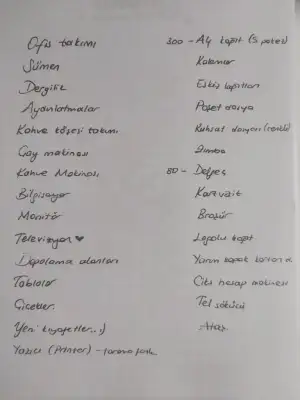 Ofis takımı
Sümen
Dergilik
Aydınlatmalar
Kahve köşesi takımı
Çay makinası
Kahve Makinası
Bilgisayar
Monitör
Televizyon ♥
Depolama alanları
Tablolar
Çiçekler
Yeni kıyafetler.. :)
Yazıcı (Printer) -
300 - A4 kağıt (5 paket)
Kalemler
Eskiz kağıtları
Poşet dosya
Ruhsat dosyası (renkli)
Zımba
80 - Delgeç
Kartvizit
Broşür
Logolu kağıt
Yarım kapak karton
Çıktı hesap makinesi
Tel sökücü